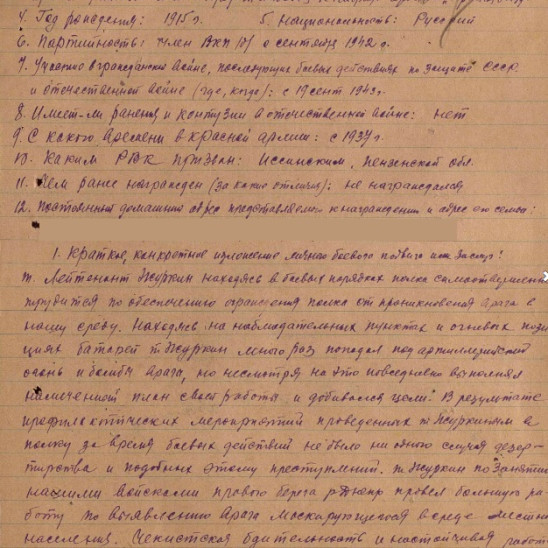 4. Год рождения: 1915 г. 5. Национальность: Русский
6. Партийность: член ВКП(б) с сентября 1942 г.
7. Участие в гражданской войне, последующих боевых действиях по защите СССР
и отечественной войне (где, когда): с 19 сент 1943 г.
8. Имеет-ли ранения и контузии в отечественной войне: нет
9. С какого времени в красной армии: с 1937 г.
10. Каким РВК призван: Иссинским, Пензенской обл.
11. Чем ранее награжден (за какие отличия): не награждался
12. Постоянный домашний адрес представляемого к награждению и адрес его семьи:
1. Краткое, конкретное изложение личного боевого подвига или заслуг:
т. Лейтенант Журкин находясь в боевых порядках полка самоотверженно
трудится по обеспечению ограждения полка от проникновения врага в
нашу среду. Находясь на наблюдательных пунктах и огневых пози
циях батарей т. Журкин много раз попадал под артиллерийский
огонь и бомбы врага, но несмотря на это повседневно выполнял
намеченный план своей работы и добивался цели. В результате
профилактических мероприятий проведенных т. Журкиным в
полку за время боевых действий не было ни одного случая дезер-
тирства и подобных этому преступлений. т. Журкин по занятии
нашими войсками правого берега р. Днепр провел большую ра-
боту по выявлению врага маскирующегося в среде местн
населения. Чекистская бдительность и настойчивая работа